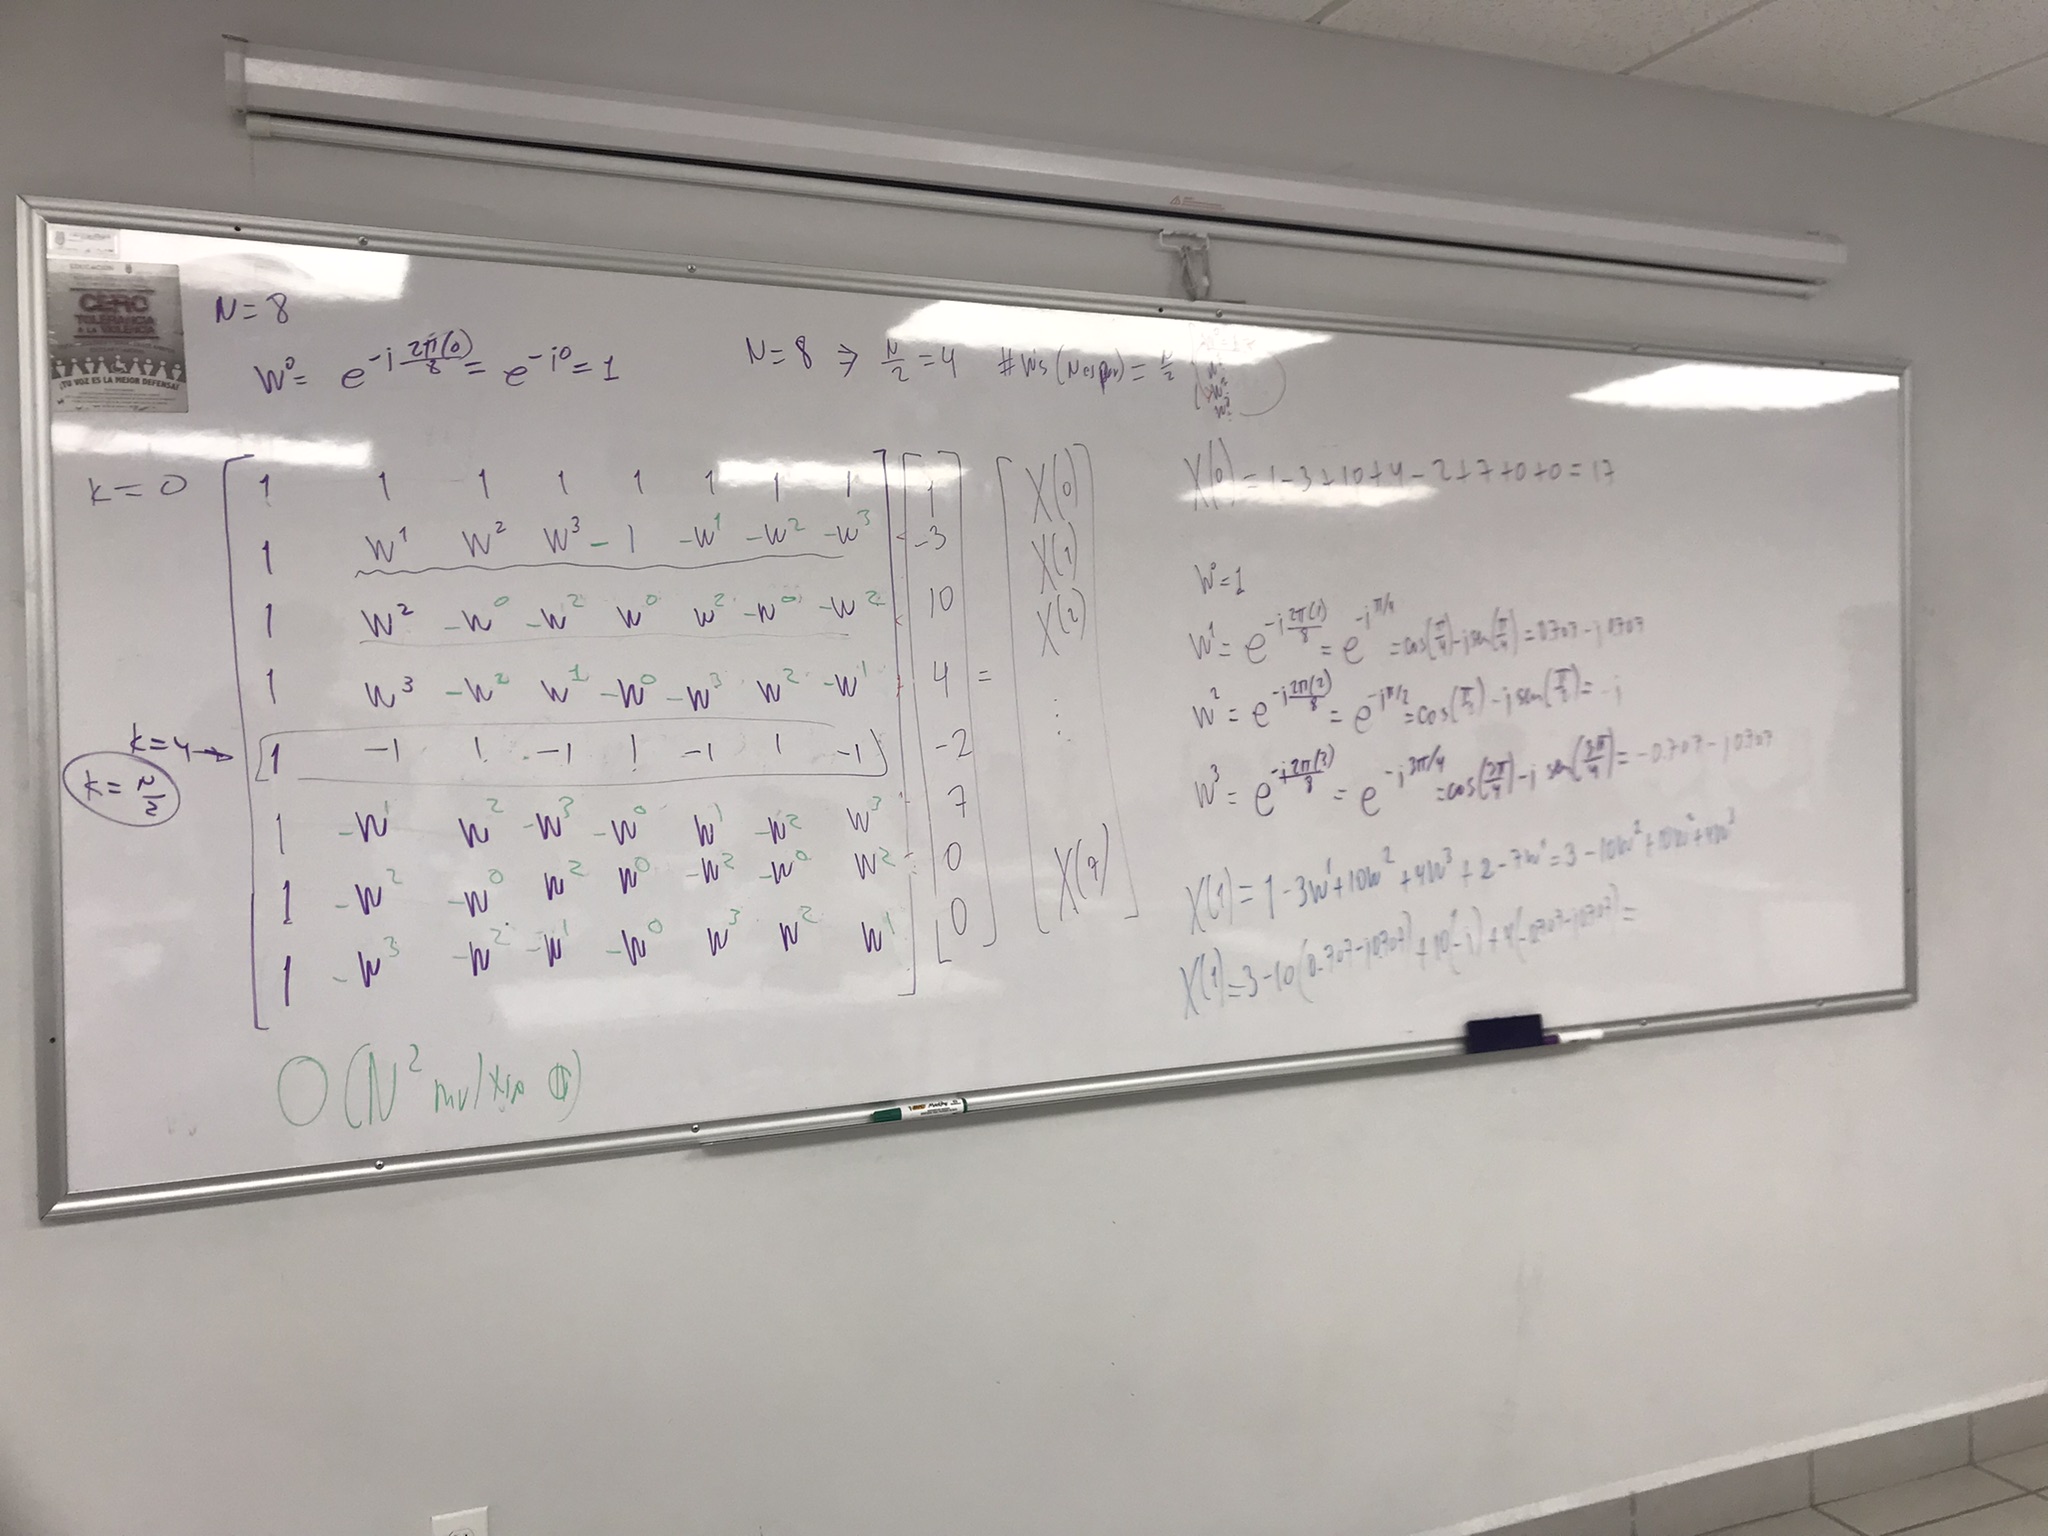 EDUCACIÓN
CERO
TOLERANCIA
A LA VIOLENCIA
¡TU VOZ ES LA MEJOR DEFENSA!
N=8
W⁰= e^(-j 2π(0)/8) = e^(-j0) = 1
N=8 ⇒ N/2 = 4 #W's (N es par) = N/2
k=0
1 1 1 1 1 1 1 1
1 W¹ W² W³ -1 -W¹ -W² -W³
1 W² -W⁰ -W² W⁰ W² -W⁰ -W²
1 W³ -W² W¹ -W⁰ -W³ W² -W¹
k=4→ 1 -1 1 -1 1 -1 1 -1
k= N/2
1 -W¹ W² -W³ -W⁰ W¹ -W² W³
1 -W² -W⁰ W² W⁰ -W² -W⁰ W²
1 -W³ -W² -W¹ -W⁰ W³ W² W¹
1
-3
10
4
-2
7
0
0
=
X(0)
X(1)
X(2)
⋮
X(7)
X(0) = 1-3+10+4-2+7+0+0 = 17
W⁰=1
W¹ = e^(-j 2π(1)/8) = e^(-jπ/4) = cos(π/4)-j sen(π/4) = 0.707-j0.707
W² = e^(-j 2π(2)/8) = e^(-jπ/2) = cos(π/2)-j sen(π/2) = -j
W³ = e^(-j 2π(3)/8) = e^(-j3π/4) = cos(3π/4)-j sen(3π/4) = -0.707-j0.707
X(1) = 1-3W¹+10W²+4W³+2-7W¹ = 3-10W²+10W²+4W³
X(1) = 3-10(0.707-j0.707)+10(-j)+4(-0.707-j0.707) =
O(N²